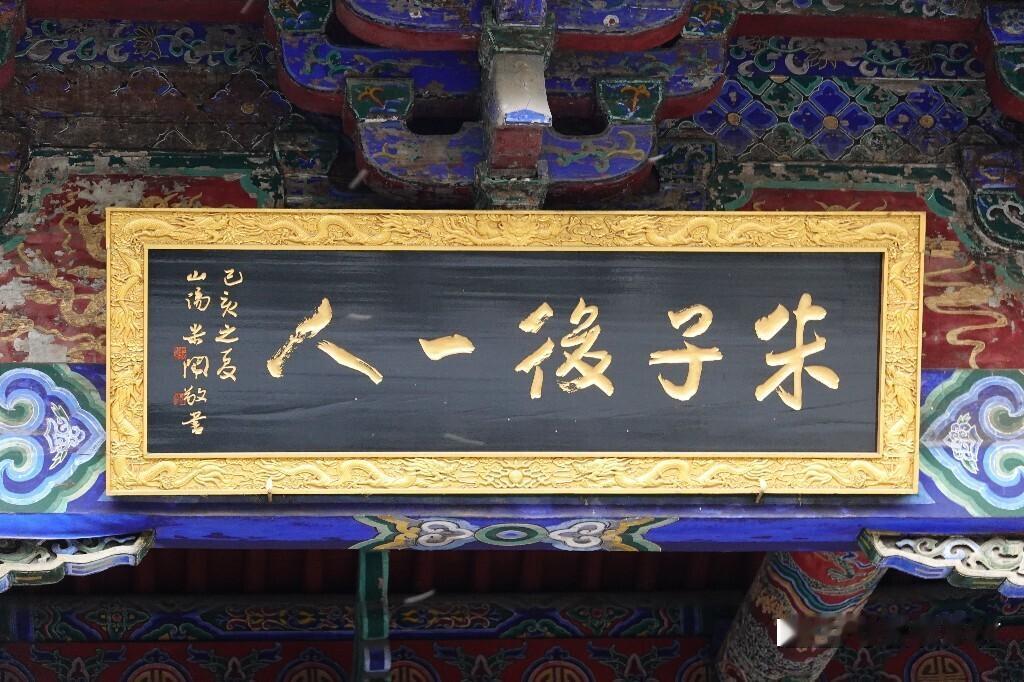 朱子後一人
己亥之夏
山陽米闹敬書